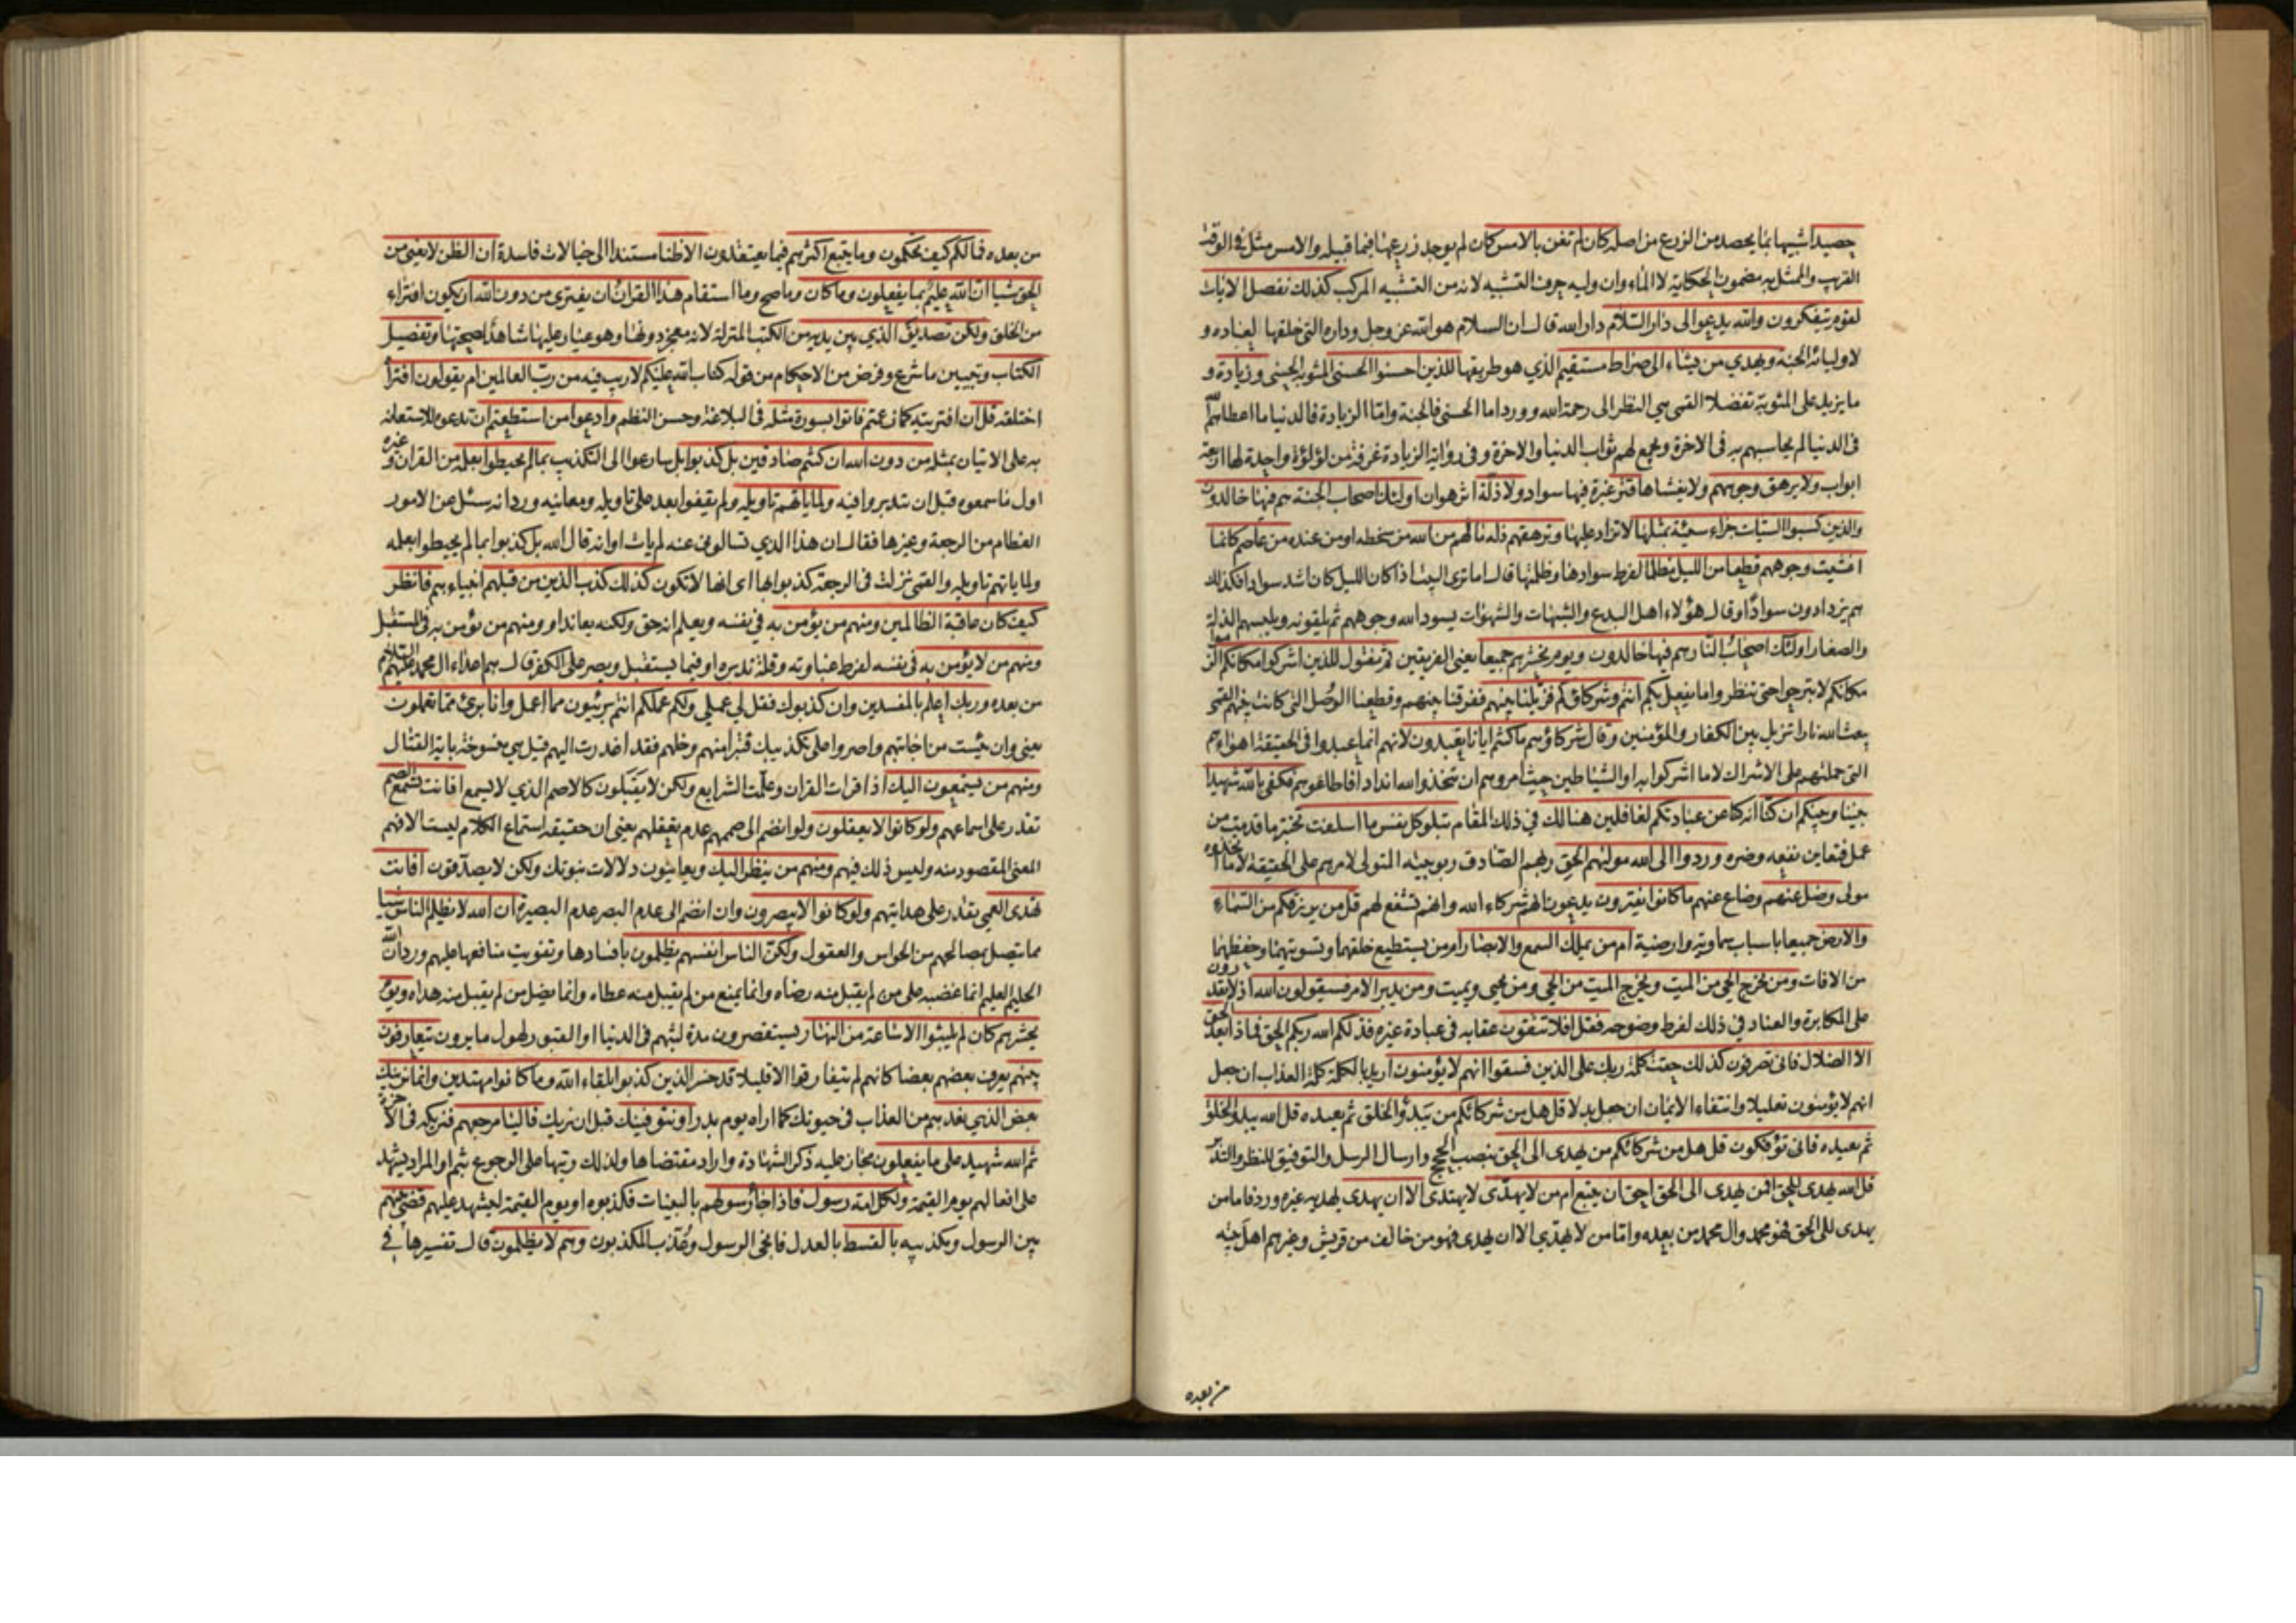 حصيدا شبيها بما يحصد من الزرع من اصله كان لم تغن بالامس كان لم يوجد زرعها فيما قبيله والامس مثل في الوقت
القريب والممثل به مضمون الحكاية لا الماء وان وليه حرف التشبيه لانه من التشبيه المركب كذلك نفصل الايات
لقوم يتفكرون والله يدعوا الى دار السلام دار الله قال ان السلام هو الله عز وجل وداره التي خلقها لعباده و
لاوليائه الجنة ويهدي من يشاء الى صراط مستقيم الذي هو طريقها للذين احسنوا الحسنى المثوبة الحسنى وزيادة و
ما يزيد على المثوبة تفضلا القمى هي النظر الى رحمة الله وورد اما الحسنى فالجنة واما الزيادة فالدنيا ما اعطاهم الله
في الدنيا لم يحاسبهم به في الاخرة ويجمع لهم ثواب الدنيا والاخرة وفي رواية الزيادة غرفة من لؤلؤة واحدة لها اربعة
ابواب ولا يرهق وجوههم ولا يغشاها قتر غبرة فيها سواد ولا ذلة اثر هوان اولئك اصحاب الجنة هم فيها خالدون
والذين كسبوا السيئات جزاء سيئة بمثلها لا تزاد عليها وترهقهم ذلة ما لهم من الله من سخطه او من عنده من عاصم كانما
اغشيت وجوههم قطعا من الليل مظلما لفرط سوادها وظلمتها قال اما ترى البيت اذا كان الليل كان اشد سوادا فكذلك
هم يزدادون سوادا وقال هؤلاء اهل البدع والشبهات والشهوات يسود الله وجوههم ثم يلقونه ويلبسهم الذلة
والصغار اولئك اصحاب النار هم فيها خالدون ويوم نحشرهم جميعا يعني الفريقين ثم نقول للذين اشركوا مكانكم الزموا
مكانكم لا تبرحوا حتى تنظروا ما يفعل بكم انتم وشركاؤكم فزيلنا بينهم ففرقنا بينهم وقطعنا الوصل التي كانت بينهم القمى
يبعث الله نارا تزيل بين الكفار والمؤمنين وقال شركاؤهم ما كنتم ايانا تعبدون لانهم انما عبدوا في الحقيقة اهواءهم
التي حملتهم على الاشراك لا ما اشركوا به او الشياطين حيث امروهم ان تتخذوا لله اندادا فاطاعوهم فكفى بالله شهيدا
بيننا وبينكم ان كنا انه كنا عن عبادتكم لغافلين هنالك في ذلك المقام تبلو كل نفس ما اسلفت تختبر ما قدمت من
عمل فتعاين نفعه وضره وردوا الى الله موليهم الحق ربهم الصادق ربوبيته المتولى لامرهم على الحقيقة لا ما اتخذوه
مولى وضل عنهم وضاع عنهم ما كانوا يفترون يدعون انهم شركاء الله وانهم تشفع لهم قل من يرزقكم من السماء
والارض جميعا باسباب سماوية وارضية ام من يملك السمع والابصار ام من يستطيع خلقهما وتسويتهما وحفظهما
من الافات ومن يخرج الحي من الميت ويخرج الميت من الحي ومن يحيي ويميت ومن يدبر الامر فسيقولون الله اذ لا يقدرون
على المكابرة والعناد في ذلك لفرط وضوحه فقل افلا تتقون عقابه في عبادة غيره فذلكم الله ربكم الحق فماذا بعد الحق
الا الضلال فانى تصرفون كذلك حقت كلمة ربك على الذين فسقوا انهم لا يؤمنون اريد بالكلمة كلمة العذاب ان جعل
انهم لا يؤمنون تعليلا وانتفاء الايمان ان جعل بدلا قل هل من شركائكم من يبدؤ الخلق ثم يعيده قل الله يبدؤ الخلق
ثم يعيده فانى تؤفكون قل هل من شركائكم من يهدى الى الحق بنصب الحجج وارسال الرسل والتوفيق للنظر والتدبر
قل الله يهدى للحق افمن يهدى الى الحق احق ان يتبع ام من لا يهدى لا يهتدى الا ان يهدى يهديه غيره ورد فاما من
يهدى الى الحق فهو محمد وال محمد من بعده واما من لا يهدي الا ان يهدى فهو من خالف من قريش وغيرهم اهل بيته
من بعده
من بعده فما لكم كيف تحكمون وما يتبع اكثرهم فيما يعتقدون الا ظنا مستندا الى خيالات فاسدة ان الظن لا يغني من
الحق شيئا ان الله عليم بما يفعلون وما كان وما صح وما استقام هذا القران ان يفترى من دون الله ان يكون افتراء
من الخلق ولكن تصديق الذي بين يديه من الكتب المنزلة لانه معجز دونها وهو عيار عليها شاهد لصحتها وتفصيل
الكتاب وتبيين ما شرع وفرض من الاحكام من قوله كتاب الله عليكم لا ريب فيه من رب العالمين ام يقولون افتراه
اختلقه قل ان افتريته كما زعمتم فاتوا بسورة مثله في البلاغة وحسن النظم وادعوا من استطعتم ان تدعوه للاستعانة
به على الاتيان بمثله من دون الله ان كنتم صادقين بل كذبوا بل سارعوا الى التكذيب بما لم يحيطوا بعلمه من القران وغيره
اول ما سمعوه قبل ان يتدبروا فيه ولما ياتهم تاويله ولم يقفوا بعد على تاويله ومعانيه ورد انه سئل عن الامور
العظام من الرجعة وغيرها فقال ان هذا الذي تسالوني عنه لم يات اوانه قال الله بل كذبوا بما لم يحيطوا بعلمه
ولما ياتهم تاويله والقمى نزلت في الرجعة كذبوا بها اى انها لا تكون كذلك كذب الذين من قبلهم انبياءهم فانظر
كيف كان عاقبة الظالمين ومنهم من يؤمن به في نفسه ويعلم انه حق ولكنه يعاند او ومنهم من يؤمن به في المستقبل
ومنهم من لا يؤمن به في نفسه لفرط غباوته وقلة تدبره او فيما يستقبل ويصر على الكفر قال هم اعداء ال محمد عليهم السلام
من بعده وربك اعلم بالمفسدين وان كذبوك فقل لي عملي ولكم عملكم انتم بريئون مما اعمل وانا برئ مما تعملون
يعني وان يئست من اجابتهم واصروا على تكذيبك فتبرا منهم وخلهم فقد اعذرت اليهم قيل هي منسوخة باية القتال
ومنهم من يستمعون اليك اذا قرات القران وعلمت الشرايع ولكن لا يقبلون كالاصم الذي لا يسمع افانت تسمع الصم
تقدر على اسماعهم ولو كانوا لا يعقلون ولو انضم الى صممهم عدم تعقلهم يعني ان حقيقة استماع الكلام ليست الا فهم
المعنى المقصود منه وليس ذلك فيهم ومنهم من ينظر اليك ويعاينون دلالات نبوتك ولكن لا يصدقون افانت
تهدى العمي تقدر على هدايتهم ولو كانوا لا يبصرون وان انضم الى عدم البصر عدم البصيرة ان الله لا يظلم الناس شيئا
مما يتصل بمصالحهم من الحواس والعقول ولكن الناس انفسهم يظلمون بافسادها وتفويت منافعها عليهم ورد ان الله
الحليم العليم انما غضبه على من لم يقبل منه رضاه وانما يمنع من لم يقبل منه عطاه وانما يضل من لم يقبل منه هداه ويوم
يحشرهم كان لم يلبثوا الا ساعة من النهار يستقصرون مدة لبثهم في الدنيا او القبور لهول ما يرون يتعارفون
بينهم يعرف بعضهم بعضا كانهم لم يتفارقوا الا قليلا قد خسر الذين كذبوا بلقاء الله وما كانوا مهتدين واما نرينك
بعض الذي نعدهم من العذاب في حيوتك كما اراه يوم بدر او نتوفينك قبل ان نريك فالينا مرجعهم فنريكه في الاخرة
ثم الله شهيد على ما يفعلون مجاز عليه ذكر الشهادة واراد مقتضاها ولذلك رتبها على الرجوع بثم او المراد يشهد
على افعالهم يوم القيمة ولكل امة رسول فاذا جاء رسولهم بالبينات فكذبوه او يوم القيمة ليشهد عليهم قضي بينهم
بين الرسول ومكذبيه بالقسط بالعدل فانجى الرسول وعذب المكذبون وهم لا يظلمون قال تفسيرها في